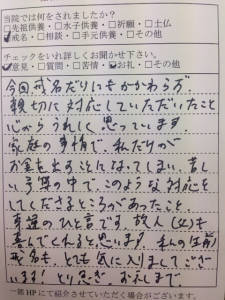 当院では何をされましたか?
□先祖供養・□水子供養・□祈願・□土仏
☑戒名・□相談・□手元供養・□その他
チェックをいれ詳しくお聞かせ下さい。
☑意見・□質問・□苦情・☑お礼・□その他
今回戒名だけにもかかわらず、
親切に対応していただいたこと
心からうれしく思っています。
家庭の事情で、私だけが
お金を出すことになってしまい、苦し
い予算の中で、このような対応を
してくださるところがあったこと、
幸運のひと言です。故人(父)も
喜んでくれると思います。私の(生前)
戒名も、とても気に入りましてござ
います! とり急ぎ お礼まで。
一部HPにて紹介させていただく場合がございます。